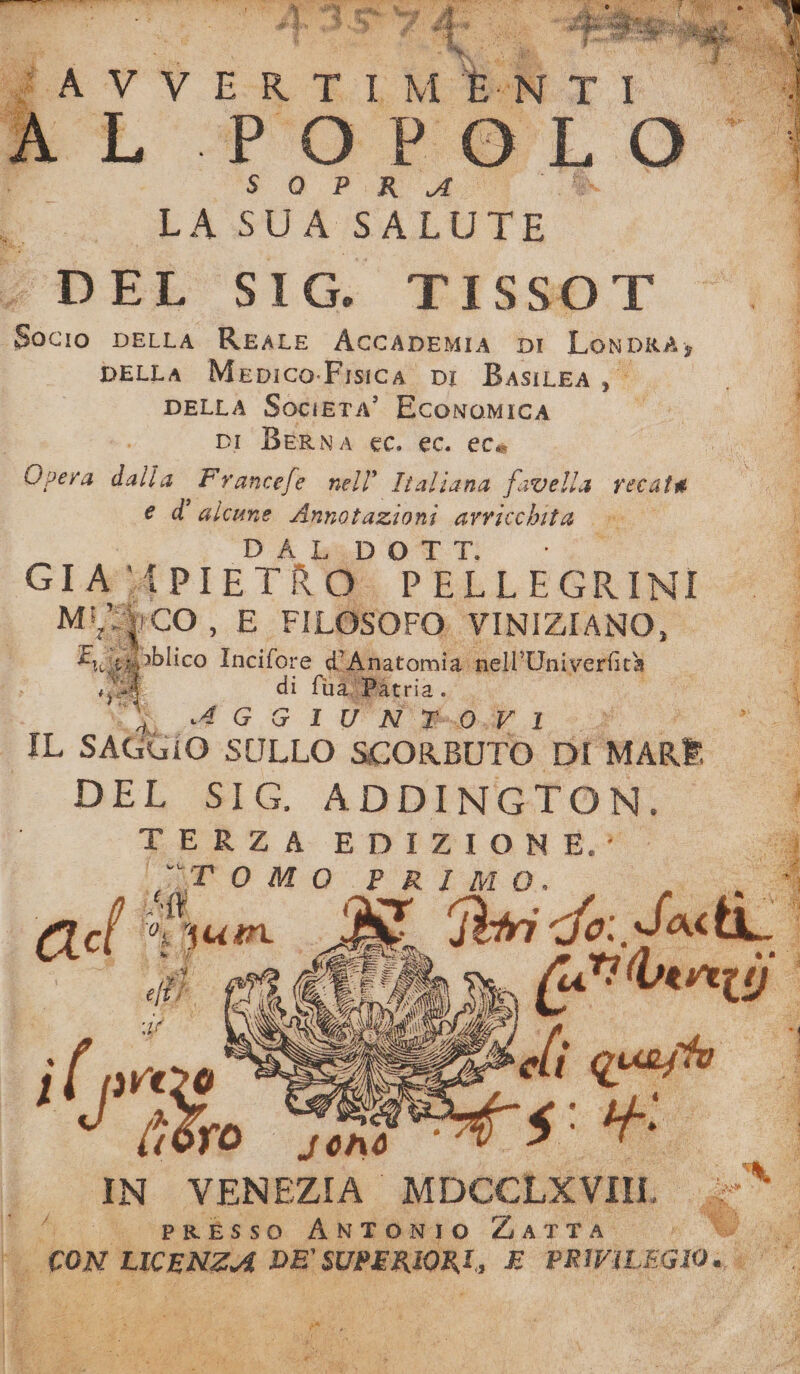 43574
AVVERTIMENTI
AL POPOLO
SOPRA
LA SUA SALUTE
DEL SIG. TISSOT
Socio della Reale Accademia di Londra,
della Medico-Fisica di Basilea,
della Societa' Economica
di Berna ec. ec. ec.
Opera dalla Franceſe nell' Italiana favella recata
e d'alcune Annotazioni arricchita
DAL DOTT.
GIAMPIETRO PELLEGRINI
CO, E FILOSOFO VINIZIANO,
blico Inciſore d'Anatomia nell'Univerſità
di ſua Patria.
AGGIUNTOVI
IL SAGGIO SULLO SCORBUTO DI MARE
DEL SIG. ADDINGTON.
TERZA EDIZIONE.
TOMO PRIMO.
ad Petri Jo:
il prezo di questo
libro sono 5: 4:
IN VENEZIA MDCCLXVIII.
presso Antonio Zatta
CON LICENZA DE' SUPERIORI, E PRIVILEGIO.